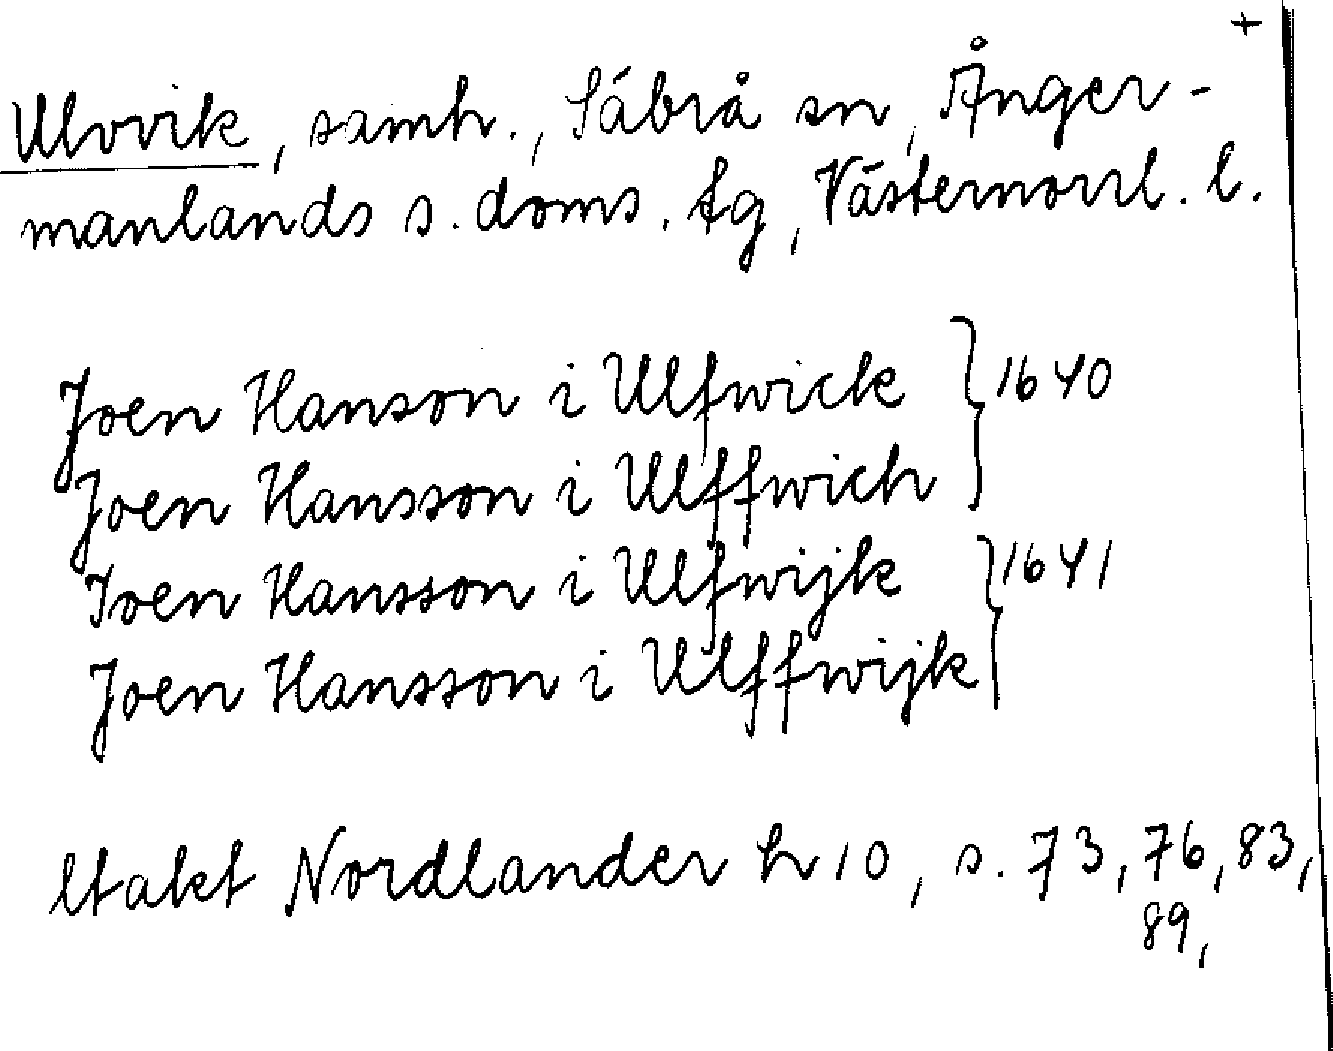 +
Ulvvik, samh., Säbrå sn, Ånger-
manlands s. doms. tg, Västernorrl. l.
Joen Hanson i Ulfwick } 1640
Joen Hansson i Ulffwich
Ioen Hansson i Ulfwijk } 1641
Joen Hansson i Ulffwijk
Utakt Nordlander h 10, s. 73, 76, 83,
89,